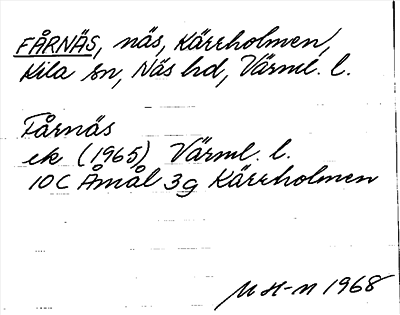 FÅRNÄS, näs, Kärrholmen,
Kila sn, Näs hd, Värml. l.
Fårnäs
ek (1965) Värml. l.
10C Åmål 3g Kärrholmen
M H-n 1968